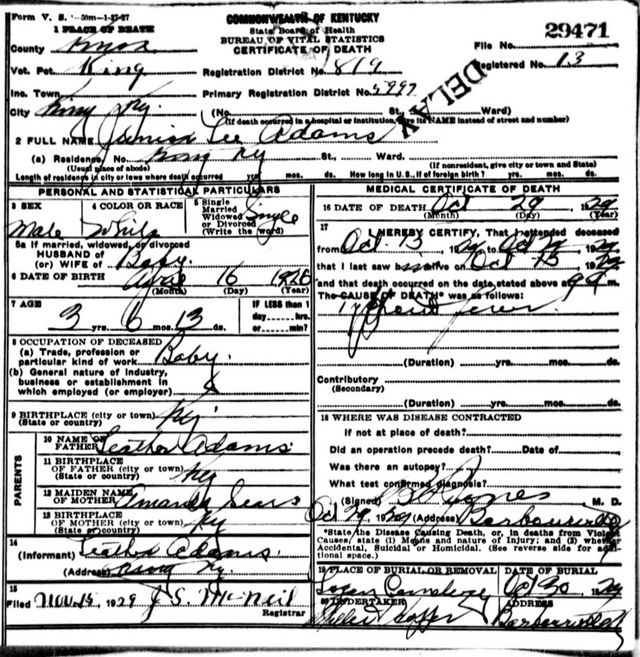 Form V. S. 1-50m-1-27-27
COMMONWEALTH OF KENTUCKY
State Board of Health
BUREAU OF VITAL STATISTICS
CERTIFICATE OF DEATH
29471
File No.
Registered No. 13
DELAY
1 PLACE OF DEATH
County Knox
Vot. Pct. King
Registration District No. 819
Inc. Town
Primary Registration District No. 5997
City King Ky. (No. St., Ward)
(If death occurred in a hospital or institution, give its NAME instead of street and number)
2 FULL NAME Lee Adams
(a) Residence. No. King Ky St., Ward.
(Usual place of abode) (If nonresident, give city or town and State)
Length of residence in city or town where death occurred yrs. mos. ds. How long in U. S., if of foreign birth? yrs. mos. ds.
PERSONAL AND STATISTICAL PARTICULARS
3 SEX Male
4 COLOR OR RACE White
5 Single Married Widowed or Divorced (Write the word) Single
5a If married, widowed, or divorced
HUSBAND of
(or) WIFE of Baby.
6 DATE OF BIRTH April 16 1926
(Month) (Day) (Year)
7 AGE 3 yrs. 6 mos. 13 ds.
IF LESS than 1 day hrs. or min?
8 OCCUPATION OF DECEASED
(a) Trade, profession or particular kind of work Baby.
(b) General nature of Industry, business or establishment in which employed (or employer)
9 BIRTHPLACE (city or town) Ky.
(State or country)
PARENTS
10 NAME OF FATHER Adams
11 BIRTHPLACE OF FATHER (city or town) Ky
(State or country)
12 MAIDEN NAME OF MOTHER Amanda Sears
13 BIRTHPLACE OF MOTHER (city or town) Ky
(State or country)
14
(Informant) Adams
(Address) King Ky.
15
Filed Nov. 15 1929 J. S. McNeil
Registrar
MEDICAL CERTIFICATE OF DEATH
16 DATE OF DEATH Oct 29 1929
(Month) (Day) (Year)
17
I HEREBY CERTIFY, That I attended deceased
from Oct. 13 1929
that I last saw alive on Oct 1929
and that death occurred on the date stated above at m.
The CAUSE OF DEATH* was as follows:
Typhoid fever
(Duration) yrs. mos. ds.
Contributory
(Secondary)
(Duration) yrs. mos. ds.
18 WHERE WAS DISEASE CONTRACTED
if not at place of death?
Did an operation precede death? Date of
Was there an autopsy?
What test confirmed diagnosis?
(Signed) M. D.
Oct 29, 1929 (Address) Barbourville
*State the Disease Causing Death, or, in deaths from Violent
Causes, state (1) Means and nature of Injury; and (2) whether
Accidental, Suicidal or Homicidal. (See reverse side for additional space.)
19 PLACE OF BURIAL OR REMOVAL
Logan Oct 30 1929
20 UNDERTAKER ADDRESS
Barbourville